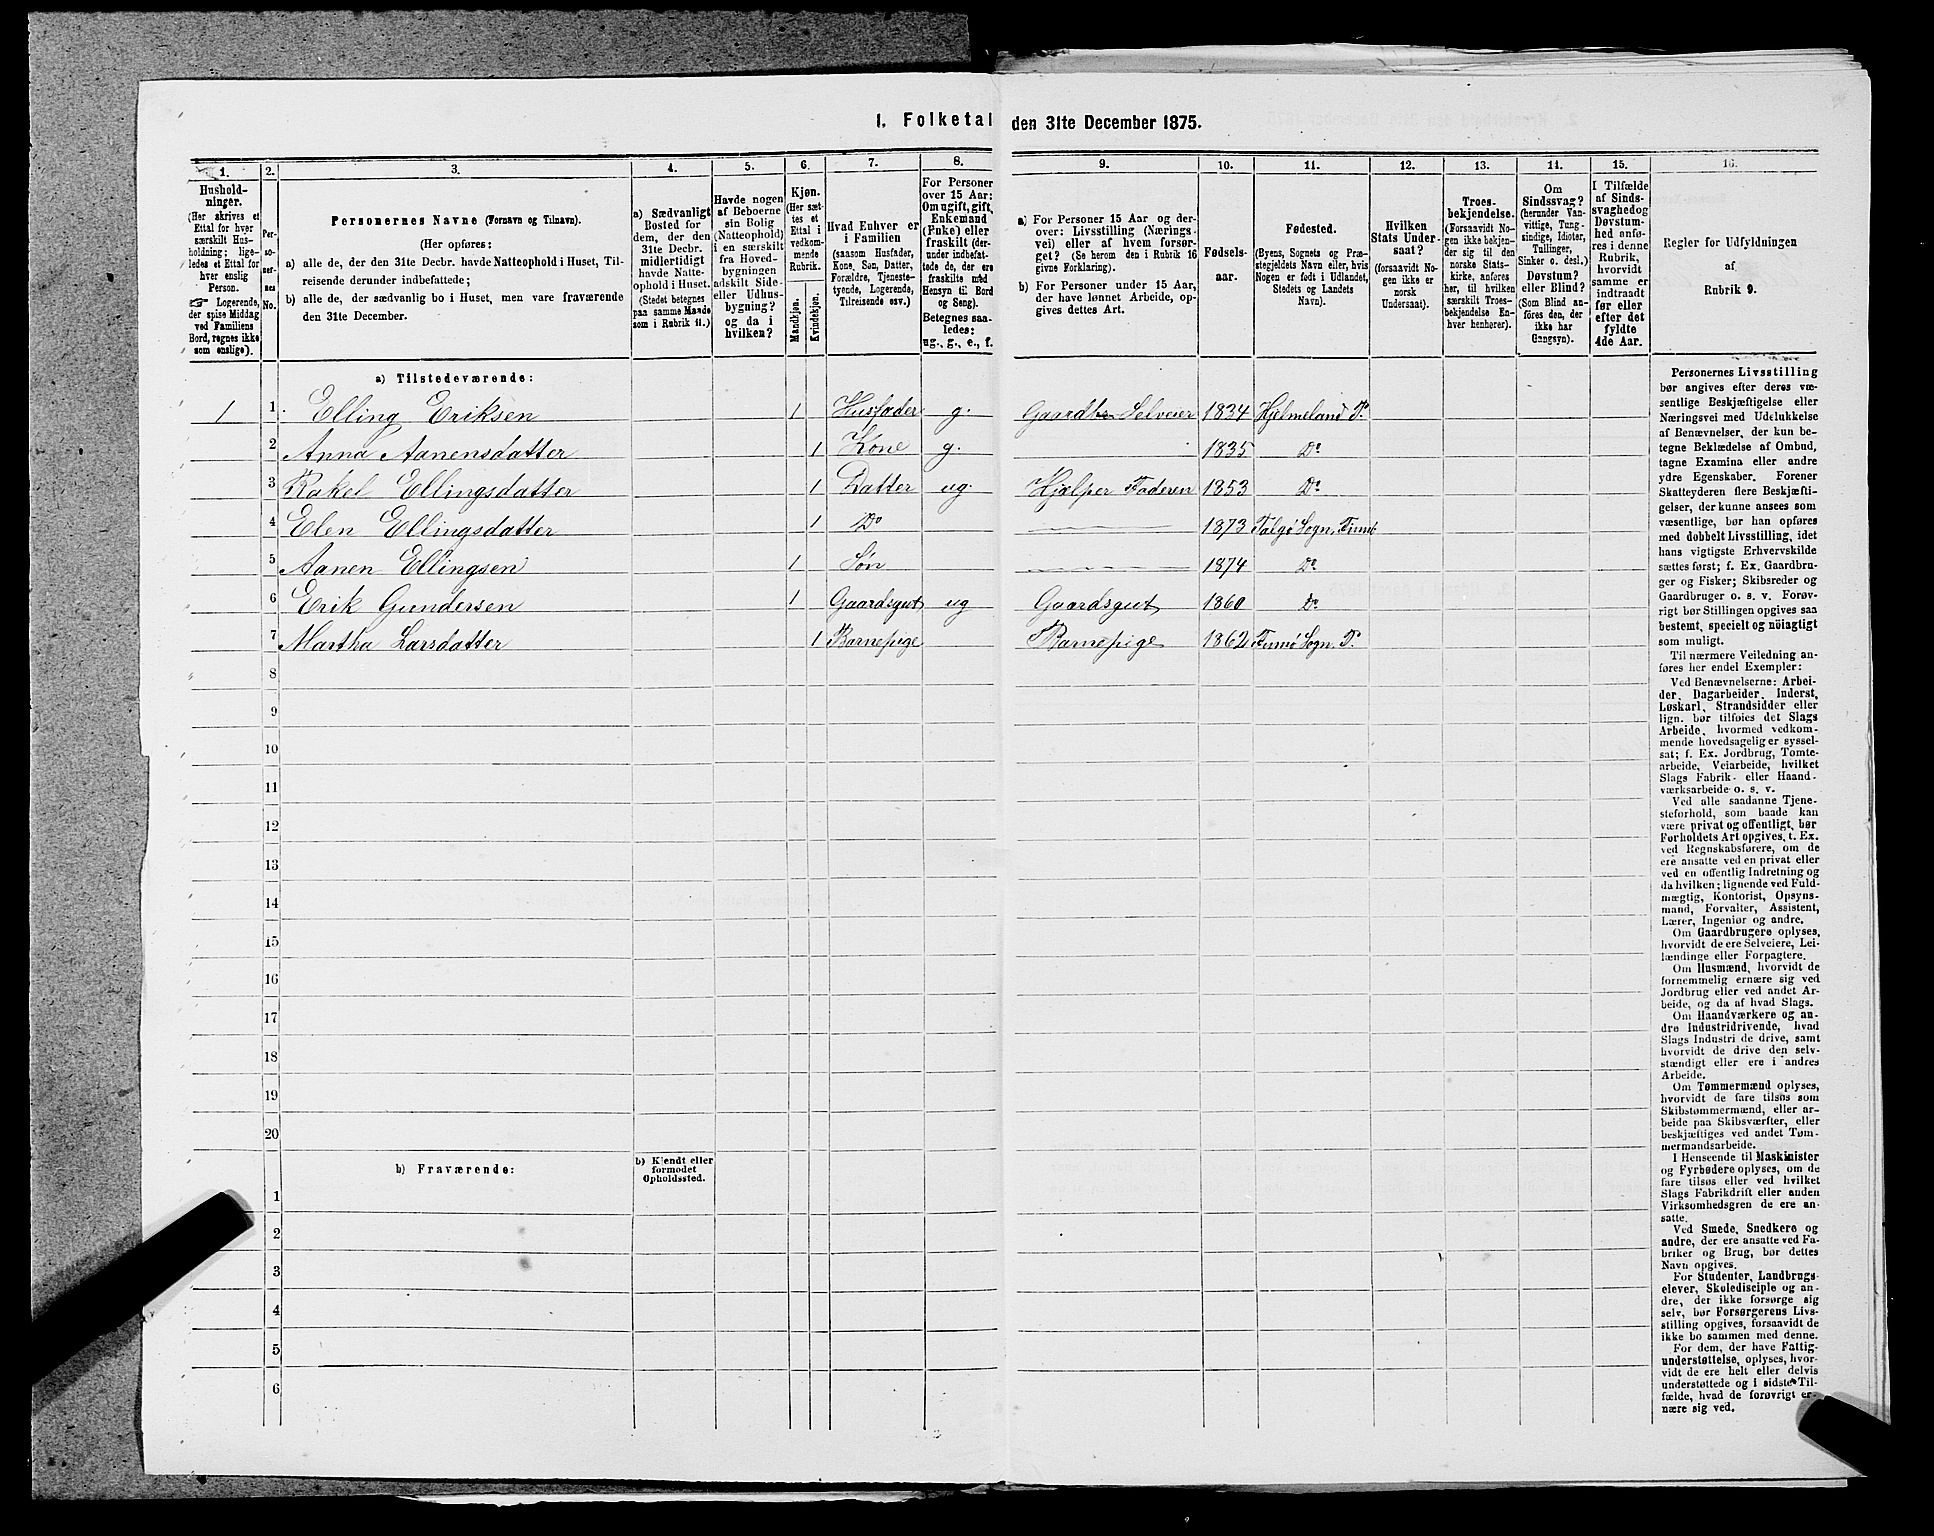 1. Folketal den 31te December 1875.
1. 2. 3. 4. 5. 6. 7. 8. 9. 10. 11. 12. 13. 14. 15. 16.
Hushold-
ninger.
(Her skrives et
Ettal for hver
særskilt Hus-
holdning; lige-
ledes et Ettal for
hver enslig
Person.
☞ Logerende,
der spise Middag
ved Familiens
Bord, regnes ikke
som enslige).
Per-
so-
ner-
nes
No.
Personernes Navne (Fornavn og Tilnavn).
(Her opføres:
a) alle de, der den 31te Decbr. havde Natteophold i Huset, Til-
reisende derunder indbefattede;
b) alle de, der sædvanlig bo i Huset, men vare fraværende
den 31te December.
a) Sædvanligt
Bosted for
dem, der den
31te Decbr.
midlertidigt
havde Natte-
ophold i Huset.
(Stedet betegnes
paa samme Maade
som i Rubrik 11.)
Havde nogen
af Beboerne
sin Bolig
(Natteophold)
i en særskilt
fra Hoved-
bygningen
adskilt Side-
eller Udhus-
bygning?
og da i
hvilken?
Kjøn.
(Her sæt-
tes et
Ettal i
vedkom-
mende
Rubrik.
Mandkjøn.
Kvindekjøn.
Hvad Enhver er
i Familien
(saasom Husfader,
Kone, Søn, Datter,
Forældre, Tjeneste-
tyende, Logerende,
Tilreisende osv.)
For Personer
over 15 Aar:
Om ugift, gift,
Enkemand
(Enke) eller
fraskilt (der-
under indbefat-
tede de, der ere
fraskilte med
Hensyn til Bord
og Seng).
Betegnes saa-
ledes:
ug., g., e., f.
a) For Personer 15 Aar og der-
over: Livsstilling (Nærings-
vei) eller af hvem forsør-
get? (Se herom den i Rubrik 16
givne Forklaring).
b) For Personer under 15 Aar,
der have lønnet Arbeide, op-
gives dettes Art.
Fødsels-
aar.
Fødested.
(Byens, Sognets og Præ-
stegjeldets Navn eller, hvis
Nogen er født i Udlandet,
Stedets og Landets
Navn).
Hvilken
Stats Under-
saat?
(forsaavidt No-
gen ikke er
norsk
Undersaat).
Troes-
bekjendelse.
(Forsaavidt No-
gen ikke bekjen-
der sig til den
norske Stats-
kirke, anføres
her, til hvilken
særskilt Troes-
bekjendelse En-
hver henhører).
Om
Sindssvag?
(herunder Van-
vittige, Tung-
sindige, Idioter,
Tullinger,
Sinker o. desl.)
Døvstum?
eller Blind?
(Som Blind an-
føres den, der
ikke har
Gangsyn).
I Tilfælde
af Sinds-
svaghed og
Døvstum-
hed anfø-
res i denne
Rubrik,
hvorvidt
samme er
indtraadt
før eller
efter det
fyldte
4de Aar.
Regler for Udfyldningen
af
Rubrik 9.
a) Tilstedeværende:
1 1 Elling Eriksen 1 Husfader g. Gaardbr Selveier 1834 Hjelmeland P.
2 Anna Aanensdatter 1 Kone g. 1835 Do
3 Rakel Ellingsdatter 1 Datter ug. Hjælper Faderen 1853 Do
4 Elen Ellingsdatter 1 Do 1873 Talgø Sogn,
5 Aanen Ellingsen 1 Søn 1874 Do
6 Erik Gundersen 1 Gaardsgut ug Gaardsgut 1860 Do
7 Martha Larsdatter 1 Barnepige Barnepige 1862 Finnø Sogn. P.
8
9
10
11
12
13
14
15
16
17
18
19
20
b) Fraværende:
b) Kjendt eller
formodet
Opholdssted.
1
2
3
4
5
6
Personernes Livsstilling
bør angives efter deres væ-
sentlige Beskjæftigelse eller
Næringsvei med Udelukkelse
af Benævnelser, der kun be-
tegne Beklædelse af Ombud,
tagne Examina eller andre
ydre Egenskaber. Forener
Skatteyderen flere Beskjæfti-
gelser, der kunne ansees som
væsentlige, bør han opføres
med dobbelt Livsstilling, idet
hans vigtigste Erhvervskilde
sættes først; f. Ex. Gaardbru-
ger og Fisker; Skibsreder og
Gaardbruger o. s. v. Forøv-
rigt bør Stillingen opgives saa
bestemt, specielt og nøiagtigt
som muligt.
Til nærmere Veiledning an-
føres her endel Exempler:
Ved Benævnelserne: Arbei-
der, Dagarbeider, Inderst,
Løskarl, Strandsidder eller
lign. bør tilføies det Slags
Arbeide, hvormed vedkom-
mende hovedsagelig er syssel-
sat; f. Ex. Jordbrug, Tomte-
arbeide, Veiarbeide, hvilket
Slags Fabrik- eller Haand-
værksarbeide o. s. v.
Ved alle saadanne Tjene-
steforhold, som baade kan
være privat og offentligt, bør
Forholdets Art opgives, t. Ex.
ved Regnskabsførere, om de
ere ansatte ved en privat eller
ved en offentlig Indretning og
da hvilken; lignende ved Fuld-
mægtig, Kontorist, Opsyns-
mand, Forvalter, Assistent,
Lærer, Ingeniør og andre.
Om Gaardbrugere oplyses,
hvorvidt de ere Selveiere, Lei-
lændinge eller Forpagtere.
Om Husmænd, hvorvidt de
fornemmelig ernære sig ved
Jordbrug eller ved andet Ar-
beide, og da af hvad Slags.
Om Haandværkere og an-
dre Industridrivende, hvad
Slags Industri de drive, samt
hvorvidt de drive den selv-
stændigt eller ere i andres
Arbeide.
Om Tømmermænd oplyses,
hvorvidt de fare tilsøs som
Skibstømmermænd, eller ar-
beide paa Skibsværfter, eller
beskjæftiges ved andet Tøm-
mermandsarbeide.
I Henseende til Maskinister
og Fyrbødere oplyses, om de
fare tilsøs eller ved hvilket
Slags Fabrikdrift eller anden
Virksomhedsgren de ere an-
satte.
Ved Smede, Snedkere og
andre, der ere ansatte ved Fa-
briker og Brug, bør dettes
Navn opgives.
For Studenter, Landbrugs-
elever, Skoledisciple og an-
dre, der ikke forsørge sig
selv, bør Forsørgerens Livs-
stilling opgives, forsaavidt de
ikke bo sammen med denne.
For dem, der have Fattig-
understøttelse, oplyses, hvor-
vidt de ere helt eller delvis
understøttede og i sidste Til-
fælde, hvad de forøvrigt er-
nære sig ved.